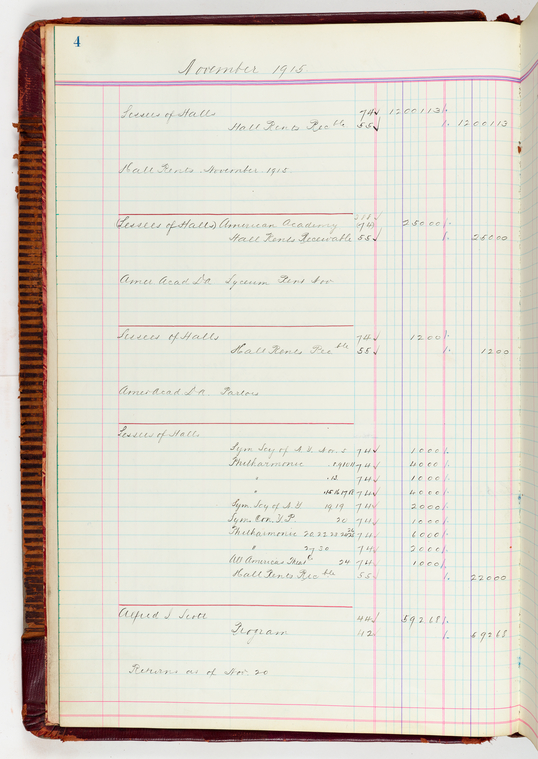 4
November 1915
Lessees of Halls 74 1200113
Hall Rents Rec ble 55 1200113
Hall Rents November 1915
(Lessees of Halls) American Academy 74 25000
Hall Rents Receivable 55 25000
Amer Acad D.A. Lyceum Rent Nov
Lessees of Halls 74 1200
Hall Rents Rec ble 55 1200
Amer Acad D.A. Parlors
Lessees of Halls
Sym. Socy of N.Y. Nov. 74 1000
Philharmonic 74 4000
" 74 1000
" 74 4000
Sym. Socy of N.Y. 19.19 74 2000
Sym. Con. Y.P. 20 74 1000
Philharmonic 74 6000
" 74 2000
All American 24 74 1000
Hall Rents Rec ble 55 22000
Alfred L. Scott 44 59268
Program 42 59268
Returns as of Nov. 20